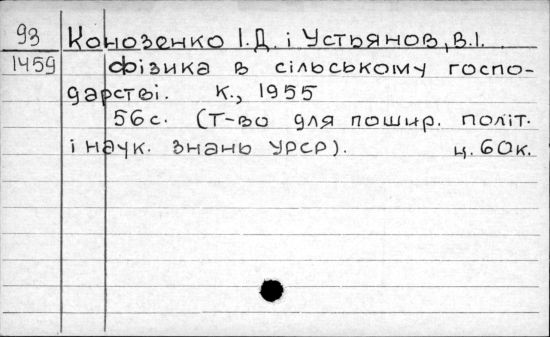 93 Конозенко І.Д. і Устьянов, В.І.
1459 Фізика в сільському госпо-
дарстві. К., 1955
56 с. (Т-во для пошир. політ.
і наук. знань УРСР). ц. 60к.